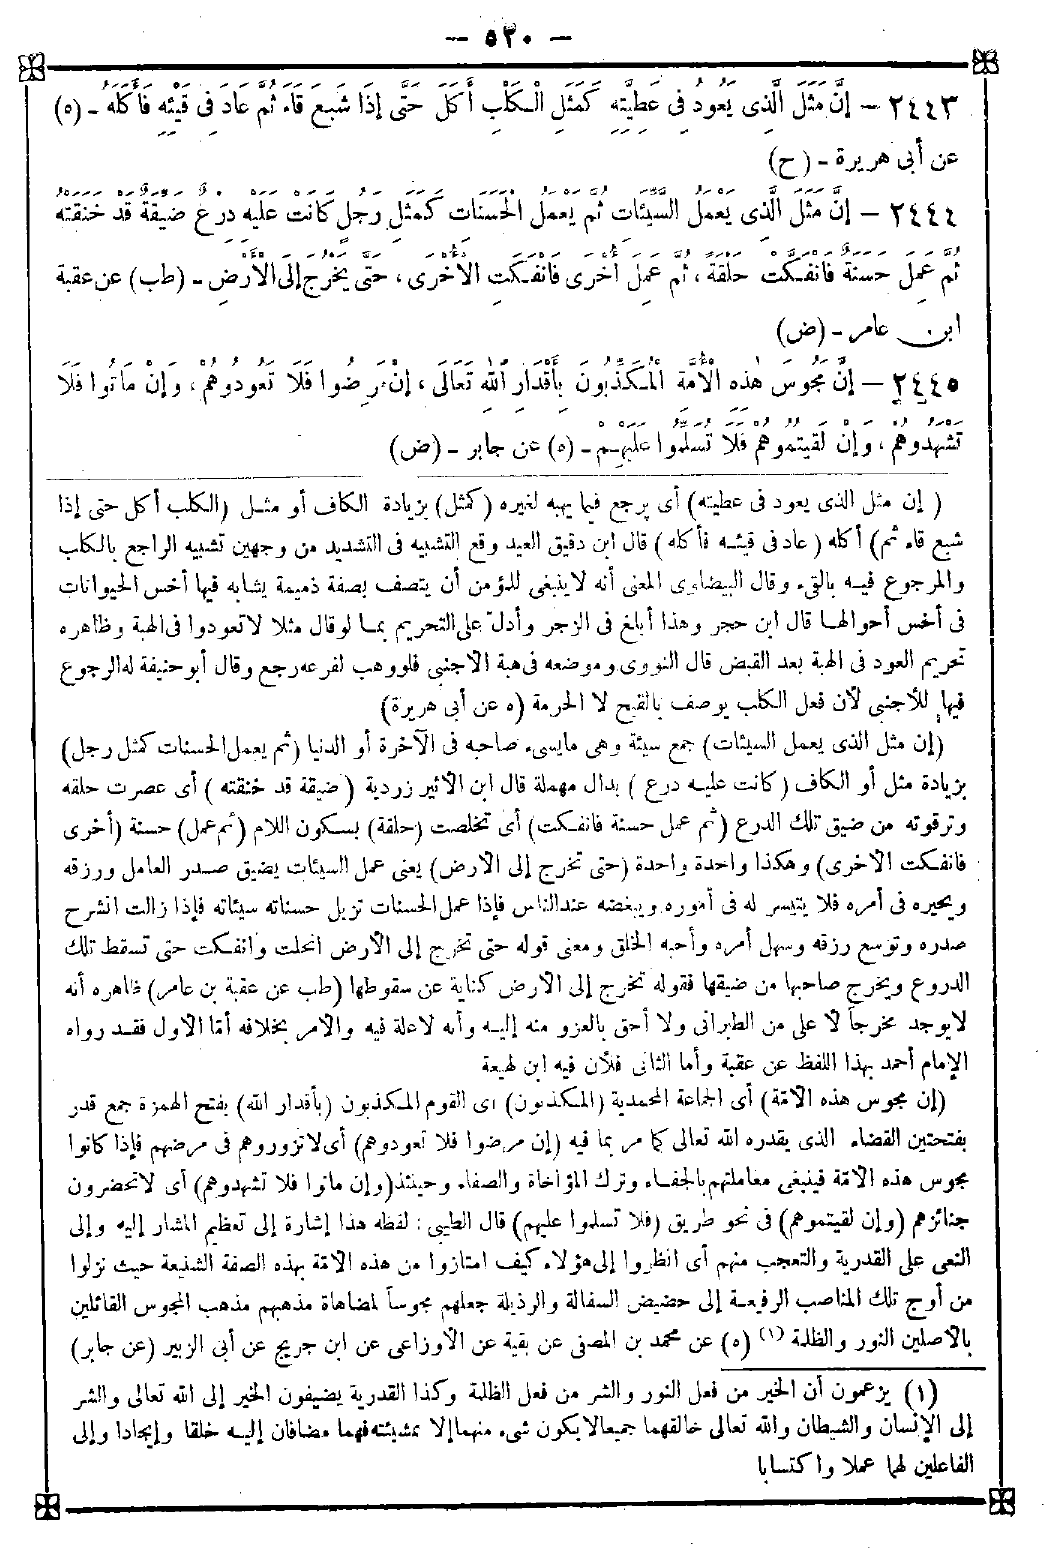 — ٥٢٠ —
٢٤٤٣ – إِنَّ مَثَلَ الَّذِى يَعُودُ فِى عَطِيَّتِهِ كَمَثَلِ الْكَلْبِ أَكَلَ حَتَّى إِذَا شَبِعَ قَاءَ ثُمَّ عَادَ فِى قَيْئِهِ فَأَكَلَهُ – (٥)
عن أبى هريرة – (ح)
٢٤٤٤ – إِنَّ مَثَلَ الَّذِى يَعْمَلُ السَّيِّئَاتِ ثُمَّ يَعْمَلُ الْحَسَنَاتِ كَمَثَلِ رَجُلٍ كَانَتْ عَلَيْهِ دِرْعٌ ضَيِّقَةٌ قَدْ خَنَقَتْهُ
ثُمَّ عَمِلَ حَسَنَةً فَانْفَكَّتْ حَلْقَةٌ ، ثُمَّ عَمِلَ أُخْرَى فَانْفَكَّتِ الْأُخْرَى ، حَتَّى يَخْرُجَ إِلَى الْأَرْضِ – (طب) عن عقبة
ابن عامر – (ض)
٢٤٤٥ – إِنَّ مَجُوسَ هٰذِهِ الْأُمَّةِ الْمُكَذِّبُونَ بِأَقْدَارِ اللهِ تَعَالَى ، إِنْ مَرِضُوا فَلَا تَعُودُوهُمْ ، وَإِنْ مَاتُوا فَلَا
تَشْهَدُوهُمْ ، وَإِنْ لَقِيتُمُوهُمْ فَلَا تُسَلِّمُوا عَلَيْهِمْ – (٥) عن جابر – (ض)
( إن مثل الذى يعود فى عطيته) أى يرجع فيما يهبه لغيره (كمثل) بزيادة الكاف أو مثـل (الكلب أكل حتى إذا
شبع قاء ثم) أكله (عاد فى قيئـه فأكله) قال ابن دقيق العيد وقع التشبيه فى التشديد من وجهين تشبيه الراجع بالكلب
والمرجوع فيـه بالقىء وقال البيضاوى المعنى أنه لاينبغى للمؤمن أن يتصف بصفة ذميمة يشابه فيها أخس الحيوانات
فى أخس أحوالهـا قال ابن حجر وهذا أبلغ فى الزجر وأدلّ على التحريم بمـا لو قال مثلا لاتعودوا فى الهبة وظاهره
تحريم العود فى الهبة بعد القبض قال النووى وموضعه فى هبة الأجنبى فلو وهب لفرعه رجع وقال أبو حنيفة له الرجوع
فيها للأجنبى لأن فعل الكلب يوصف بالقبح لا الحرمة (ه عن أبى هريرة)
(إن مثل الذى يعمل السيئات) جمع سيئة وهى مايسىء صاحبه فى الآخرة أو الدنيا (ثم يعمل الحسنات كمثل رجل)
بزيادة مثل أو الكاف (كانت عليـه درع) بدال مهملة قال ابن الأثير زردية (ضيقة قد خنقته) أى عصرت حلقه
وترقوته من ضيق تلك الدرع (ثم عمل حسنة فانفكت) أى تخلصت (حلقة) بسكون اللام (ثم عمل) حسنة (أخرى
فانفكت الأخرى) وهكذا واحدة واحدة (حتى تخرج إلى الأرض) يعنى عمل السيئات يضيق صـدر العامل ورزقه
ويحيره فى أمره فلا يتيسر له فى أموره ويبغضه عند الناس فإذا عمل الحسنات تزيل حسناته سيئاته فإذا زالت انشرح
صدره وتوسع رزقه وسهل أمره وأحبه الخلق ومعنى قوله حتى تخرج إلى الأرض انحلت وانفكت حتى تسقط تلك
الدروع ويخرج صاحبها من ضيقها فقوله تخرج إلى الأرض كناية عن سقوطها (طب عن عقبة بن عامر) ظاهره أنه
لا يوجد مخرجاً لأعلى من الطبرانى ولا أحق بالعزو منه إليـه وأنه لاعلة فيه والأمر بخلافه أمّا الأول فقـد رواه
الإمام أحمد بهذا اللفظ عن عقبة وأما الثانى فلأن فيه ابن لهيعة
(إن مجوس هذه الأمّة) أى الجماعة المحمدية (المكذبون) أى القوم المكذبون (بأقدار الله) بفتح الهمزة جمع قدر
بفتحتين القضاء الذى يقدره الله تعالى كما مر بما فيه (إن مرضوا فلا تعودوهم) أى لاتزوروهم فى مرضهم فإذا كانوا
مجوس هذه الأمّة فينبغى معاملتهم بالجفـاء وترك المؤاخاة والصفاء وحينئذ (وإن ماتوا فلا تشهدوهم) أى لاتحضرون
جنائزهم (وإن لقيتموهم) فى نحو طريق (فلا تسلموا عليهم) قال الطيبى : لفظه هذا إشارة إلى تعظيم المشار إليه وإلى
النعى على القدرية والتعجب منهم أى انظروا إلى هؤلاء كيف امتازوا من هذه الأمّة بهذه الصفة الشنيعة حيث نزلوا
من أوج تلك المناصب الرفيعـة إلى حضيض السفالة والرذيلة جعلهم مجوساً لمضاهاة مذهبهم مذهب المجوس القائلين
بالأصلين النور والظلمة (١) (٥) عن محمد بن المصفى عن بقية عن الأوزاعى عن ابن جريج عن أبى الزبير (عن جابر)
(١) يزعمون أن الخير من فعل النور والشر من فعل الظلمة وكذا القدرية يضيفون الخير إلى الله تعالى والشر
إلى الإنسان والشيطان والله تعالى خالقهما جميعا لا يكون شىء منهما إلا بمشيئته فهما مضافان إليـه خلقا وإيجادا وإلى
الفاعلين لهما عملا واكتسابا